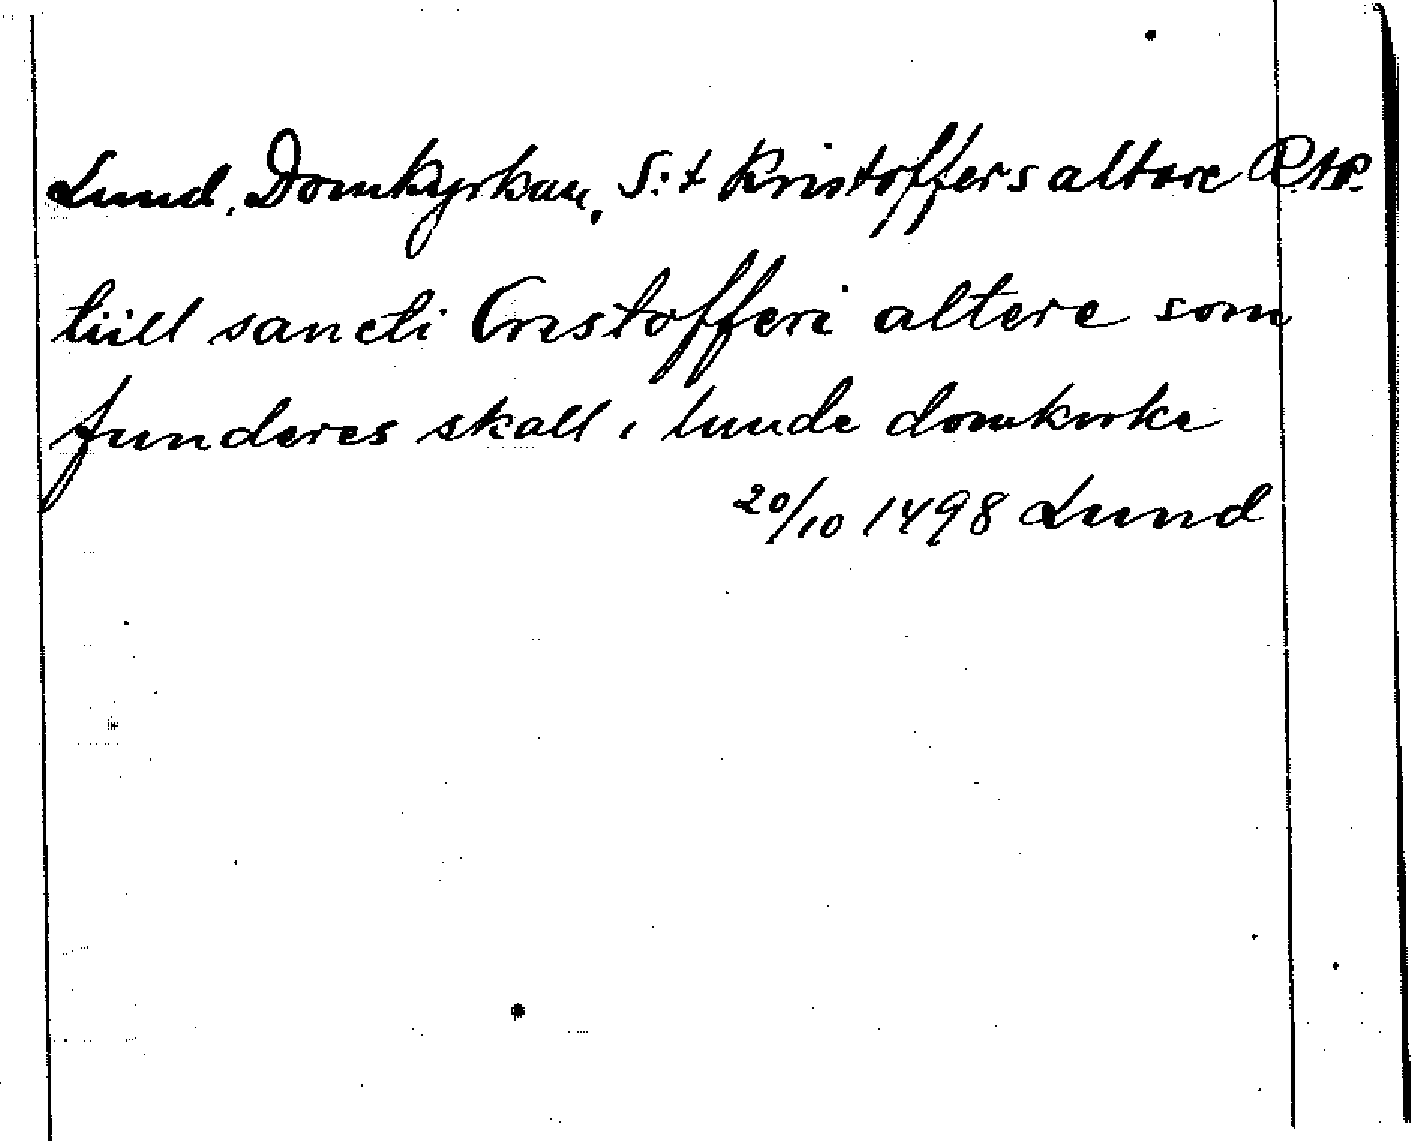 Lund, Domkyrkan, S:t Kristoffers altare
tiill sancti Cristofferi altere som
funderes skall i lunde domkirke
20/10 1498 Lund